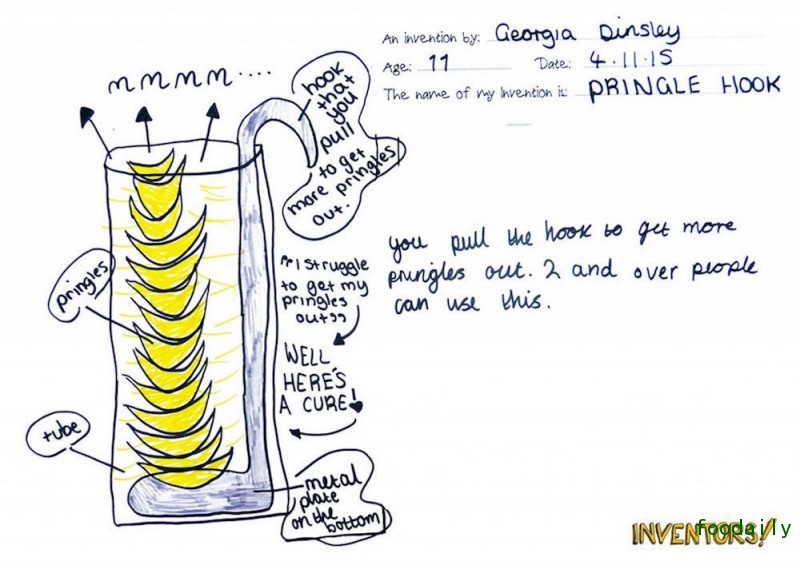 An invention by: Georgia Dinsley
Age: 11 Date: 4.11.15
The name of my invention is: PRINGLE HOOK
mmmm....
hook
that
you
pull
to get
more pringles
out.
you pull the hook to get more
pringles out. 2 and over people
can use this.
pringles
"I struggle
to get my
pringles
out"
WELL
HERE'S
A CURE!
tube
metal
plate
on the
bottom
INVENTORS!
foodaily